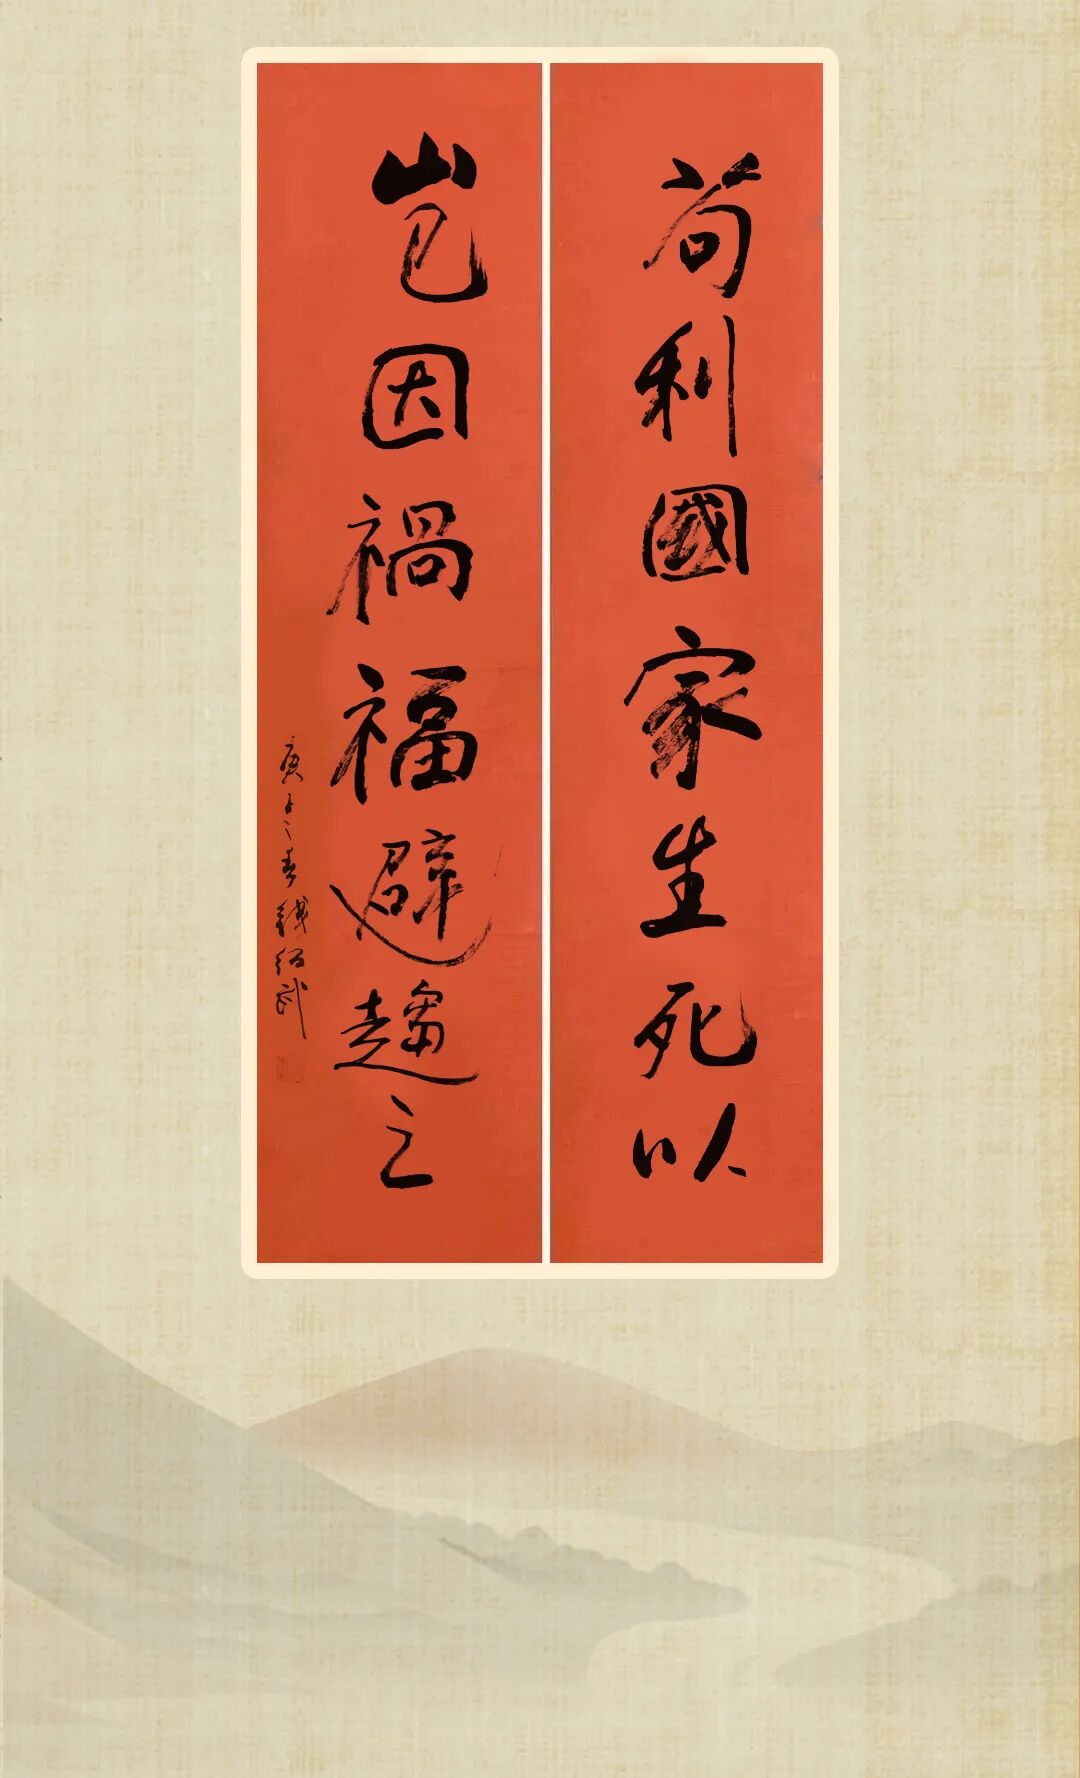 苟利國家生死以
豈因禍福避趨之
庚子春錢紹武